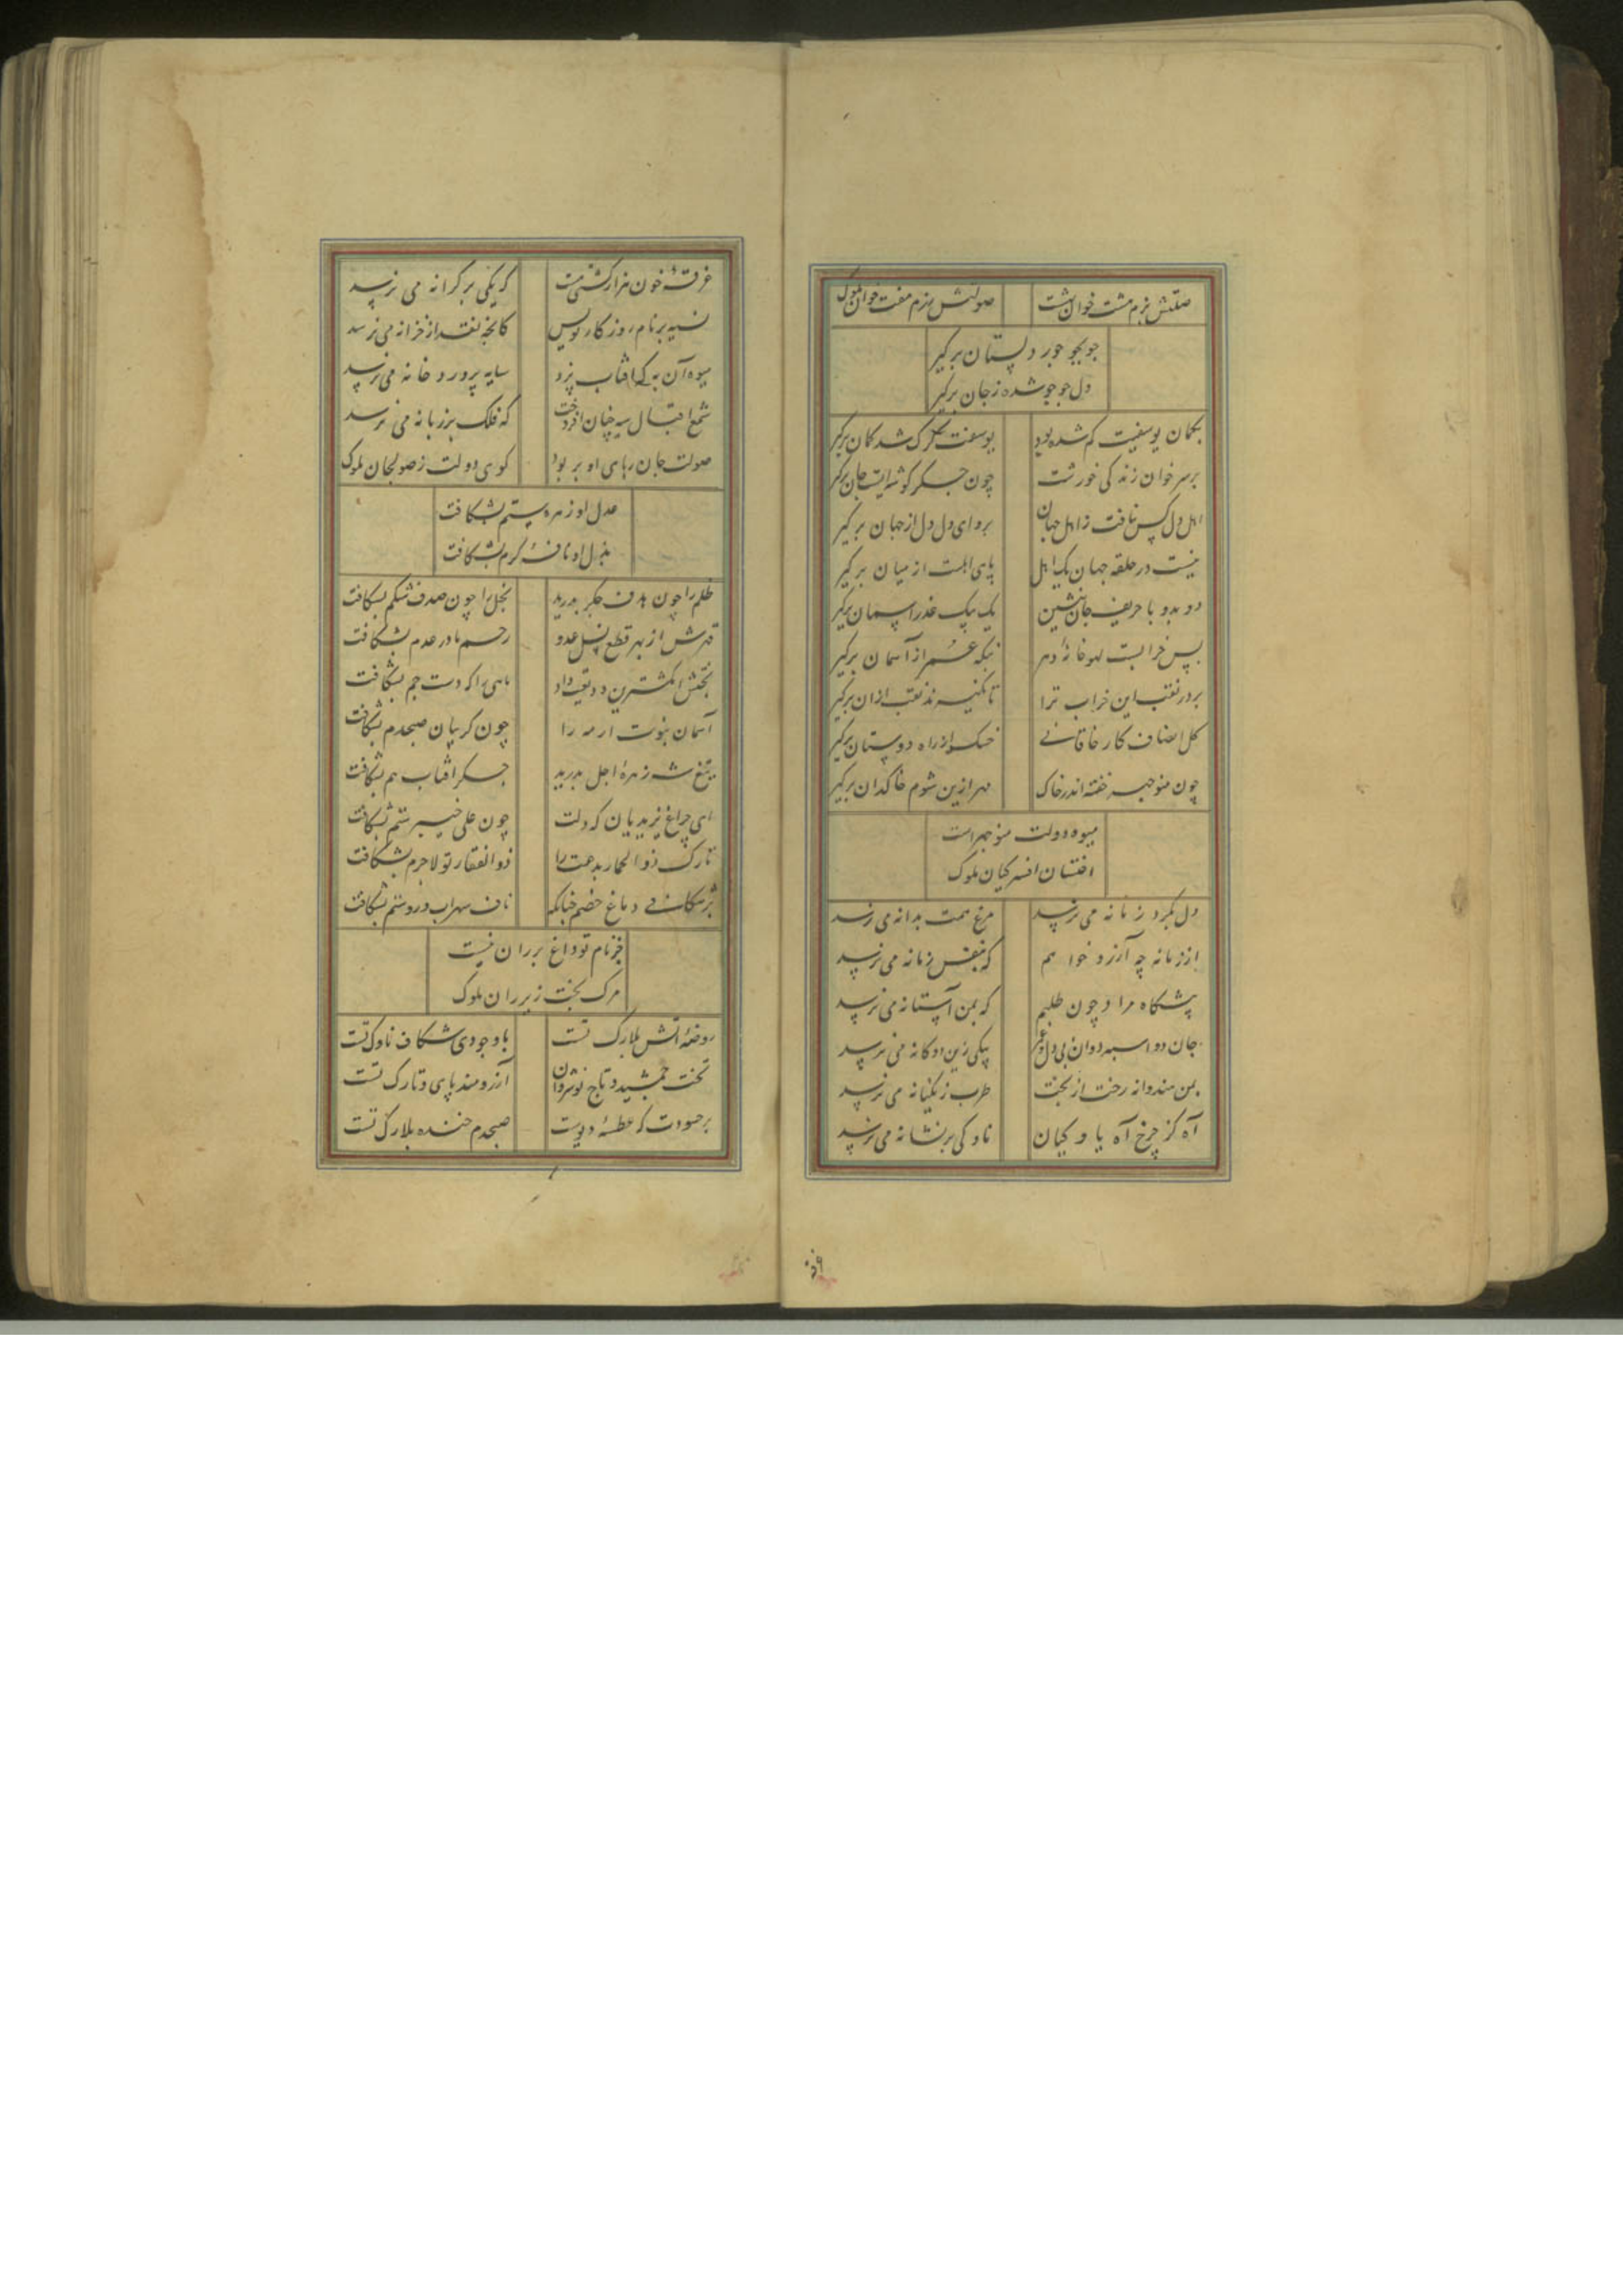 صلتش بزم هشت خوان بهشت
صولتش رزم هفت خوان ملوک
جو بجو جور دلستان برگیر
دل جو جو شده ز جان برگیر
بکمان یوسفیت کم شده بود
یوسفت گرگ شد کمان برگیر
بر سر خوان زندگی خورشت
چون جگر گوشه ایست جان برگیر
اهل دل کس نیافت ز اهل جهان
برو ای دل دل از جهان برگیر
نیست در حلقه جهان یک اهل
پای اهلت از میان برگیر
دو بدو با حریف جان بنشین
یک بیک عذر آسمان برگیر
بس خرابست لهو خانهٔ دهر
بنکه عمر از آسمان برگیر
بر در نقب این خراب ترا
تا نگیرند نقب از ان برگیر
کل انصاف کار خاقانی
خسک از راه دوستان برگیر
چون منوچهر خفته اندر خاک
مهر ازین شوم خاکدان برگیر
میوه دولت منوچهر است
اخستان افسر کیان ملوک
دل بگرد زمانه می نرسد
مرغ همت بدانه می نرسد
از زمانه چه آرزو خواهم
که بنفس زمانه می نرسد
پیشگاه مراد چون طلبم
که بمن آستانه می نرسد
جان دو اسبه دوان پی دل و عمر
بیکی زین دوگانه می نرسد
بمن هندوانه رخت از بخت
طرب زنگیانه می نرسد
آه کز چرخ آه یاوکیان
ناوکی بر نشانه می نرسد
غرقهٔ خون هزار کشتی هست
که یکی بر کرانه می نرسد
نسیه بر نام روزگار نویس
کانچه نقد از خزانه می نرسد
میوه آن به که آفتاب پزد
سایه پرورد خانه می نرسد
شمع اقبال سیه چنان افروخت
که فلک بر زبانه می نرسد
صولت جان ربای او بربود
گوی دولت ز صولجان ملوک
عدل او زهره ستم بشکافت
بذل او نافهٔ کرم بشکافت
ظلم را چون هدف جگر بدرید
بخل را چون صدف شکم بشکافت
قهرش از بهر قطع نسل عدو
رحم مادر عدم بشکافت
بختش انگشترین ودیعت داد
ماهی را که دست جم بشکافت
آسمان بنوت ار مه را
چون گریبان صبحدم بشکافت
تیغ شه زهرهٔ اجل بدرید
جگر آفتاب هم بشکافت
ای چراغ یزیدیان که دلت
چون علی خیبر ستم بشکافت
تارک ذوالحمار بدعت را
ذوالفقار تو لاجرم بشکافت
بشکافی دماغ خصم چنانکه
ناف سهراب در روستم بشکافت
جز بنام تو داغ بر ران نیست
مرکب بخت زیر ران ملوک
روضهٔ آتش بلارک تست
باد جودی شکاف ناوک تست
تخت جمشید و تاج نوشروان
آرزومند پای و تارک تست
بر حسودت که عطسهٔ دیوست
صبحدم خنده بلارک تست